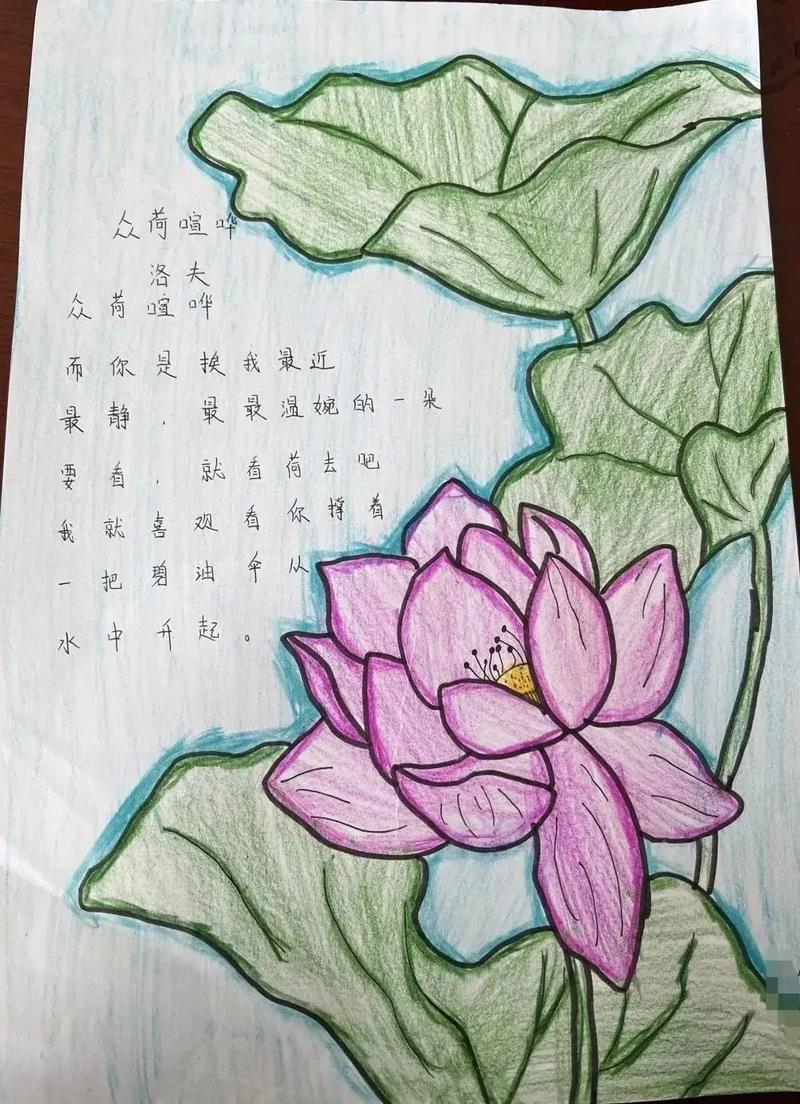 众荷喧哗
洛夫
众荷喧哗
而你是挨我最近
最静，最最温婉的一朵
要看，就看荷去吧
我就喜观看你撑着
一把碧油伞从
水中升起。